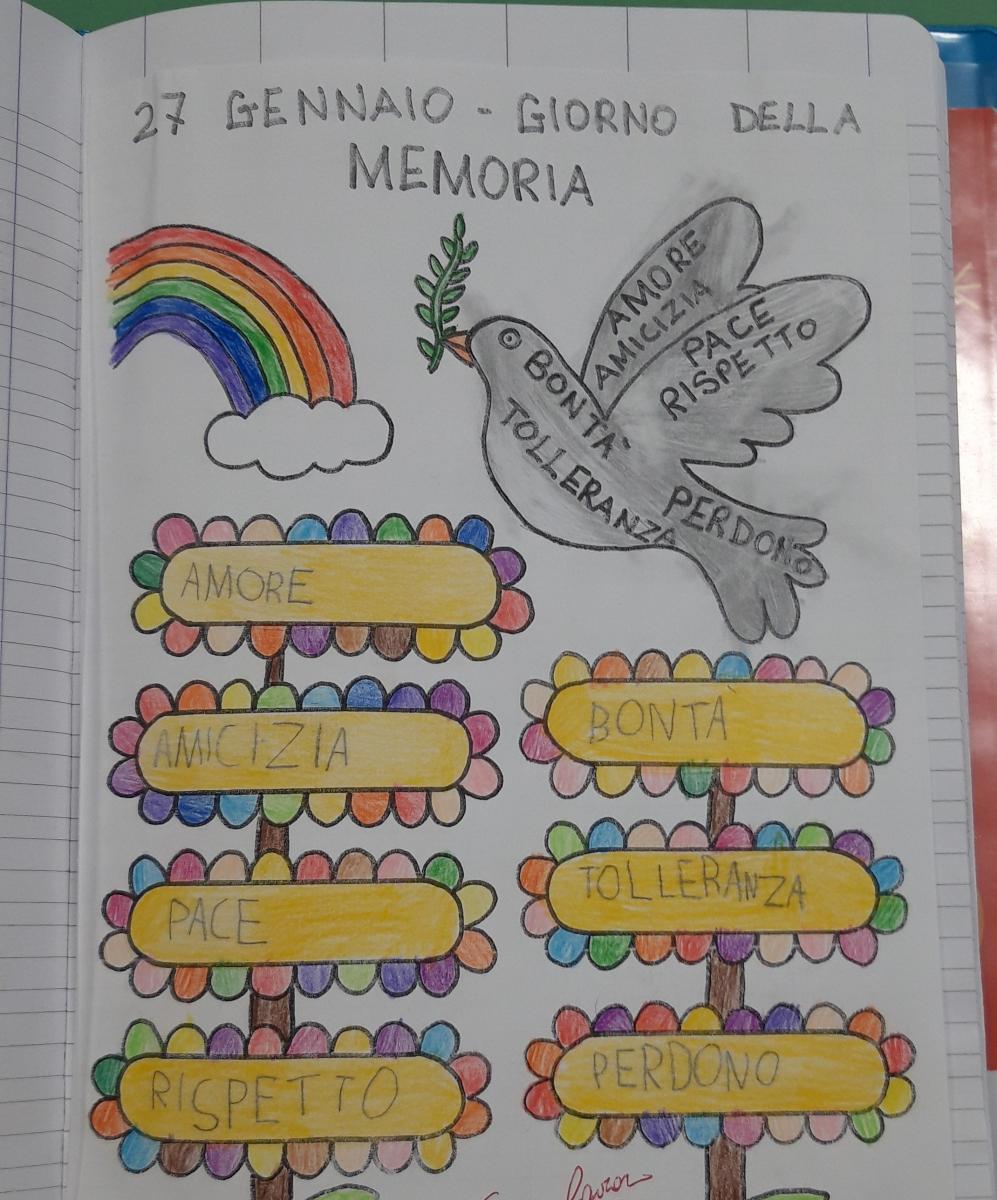 27 GENNAIO - GIORNO DELLA
MEMORIA
AMORE
AMICIZIA
PACE
RISPETTO
BONTÀ
TOLLERANZA
PERDONO
AMORE
AMICIZIA
PACE
RISPETTO
BONTA
TOLLERANZA
PERDONO